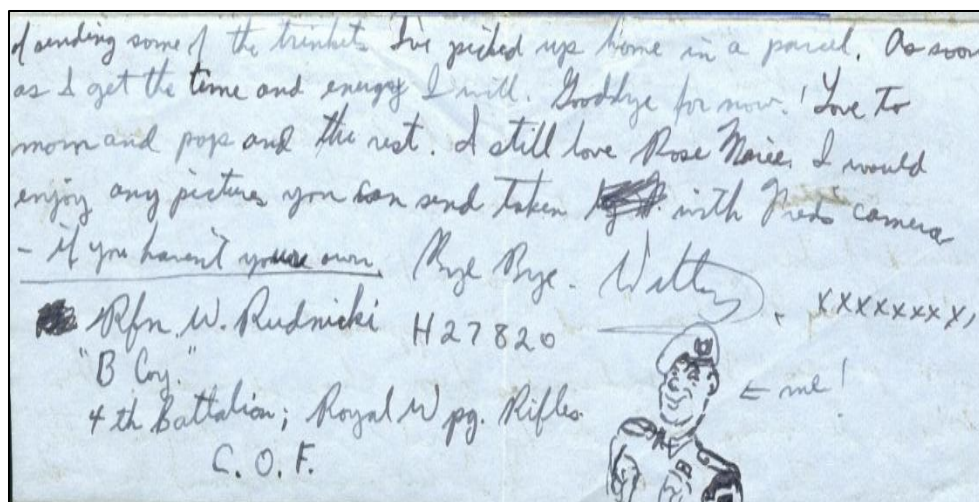 of sending some of the trinkets I've picked up home in a parcel. As soon
as I get the time and energy I will. Goodbye for now! Love to
mom and pops and the rest. I still love Rose Marie. I would
enjoy any pictures you can send taken with Freds camera
- if you haven't youre own. Bye Bye. Willy xxxxxxxx,
Rfn W. Rudnicki H27820
"B Coy."
← me!
4th Battalion; Royal Wpg. Rifles.
C. O. F.